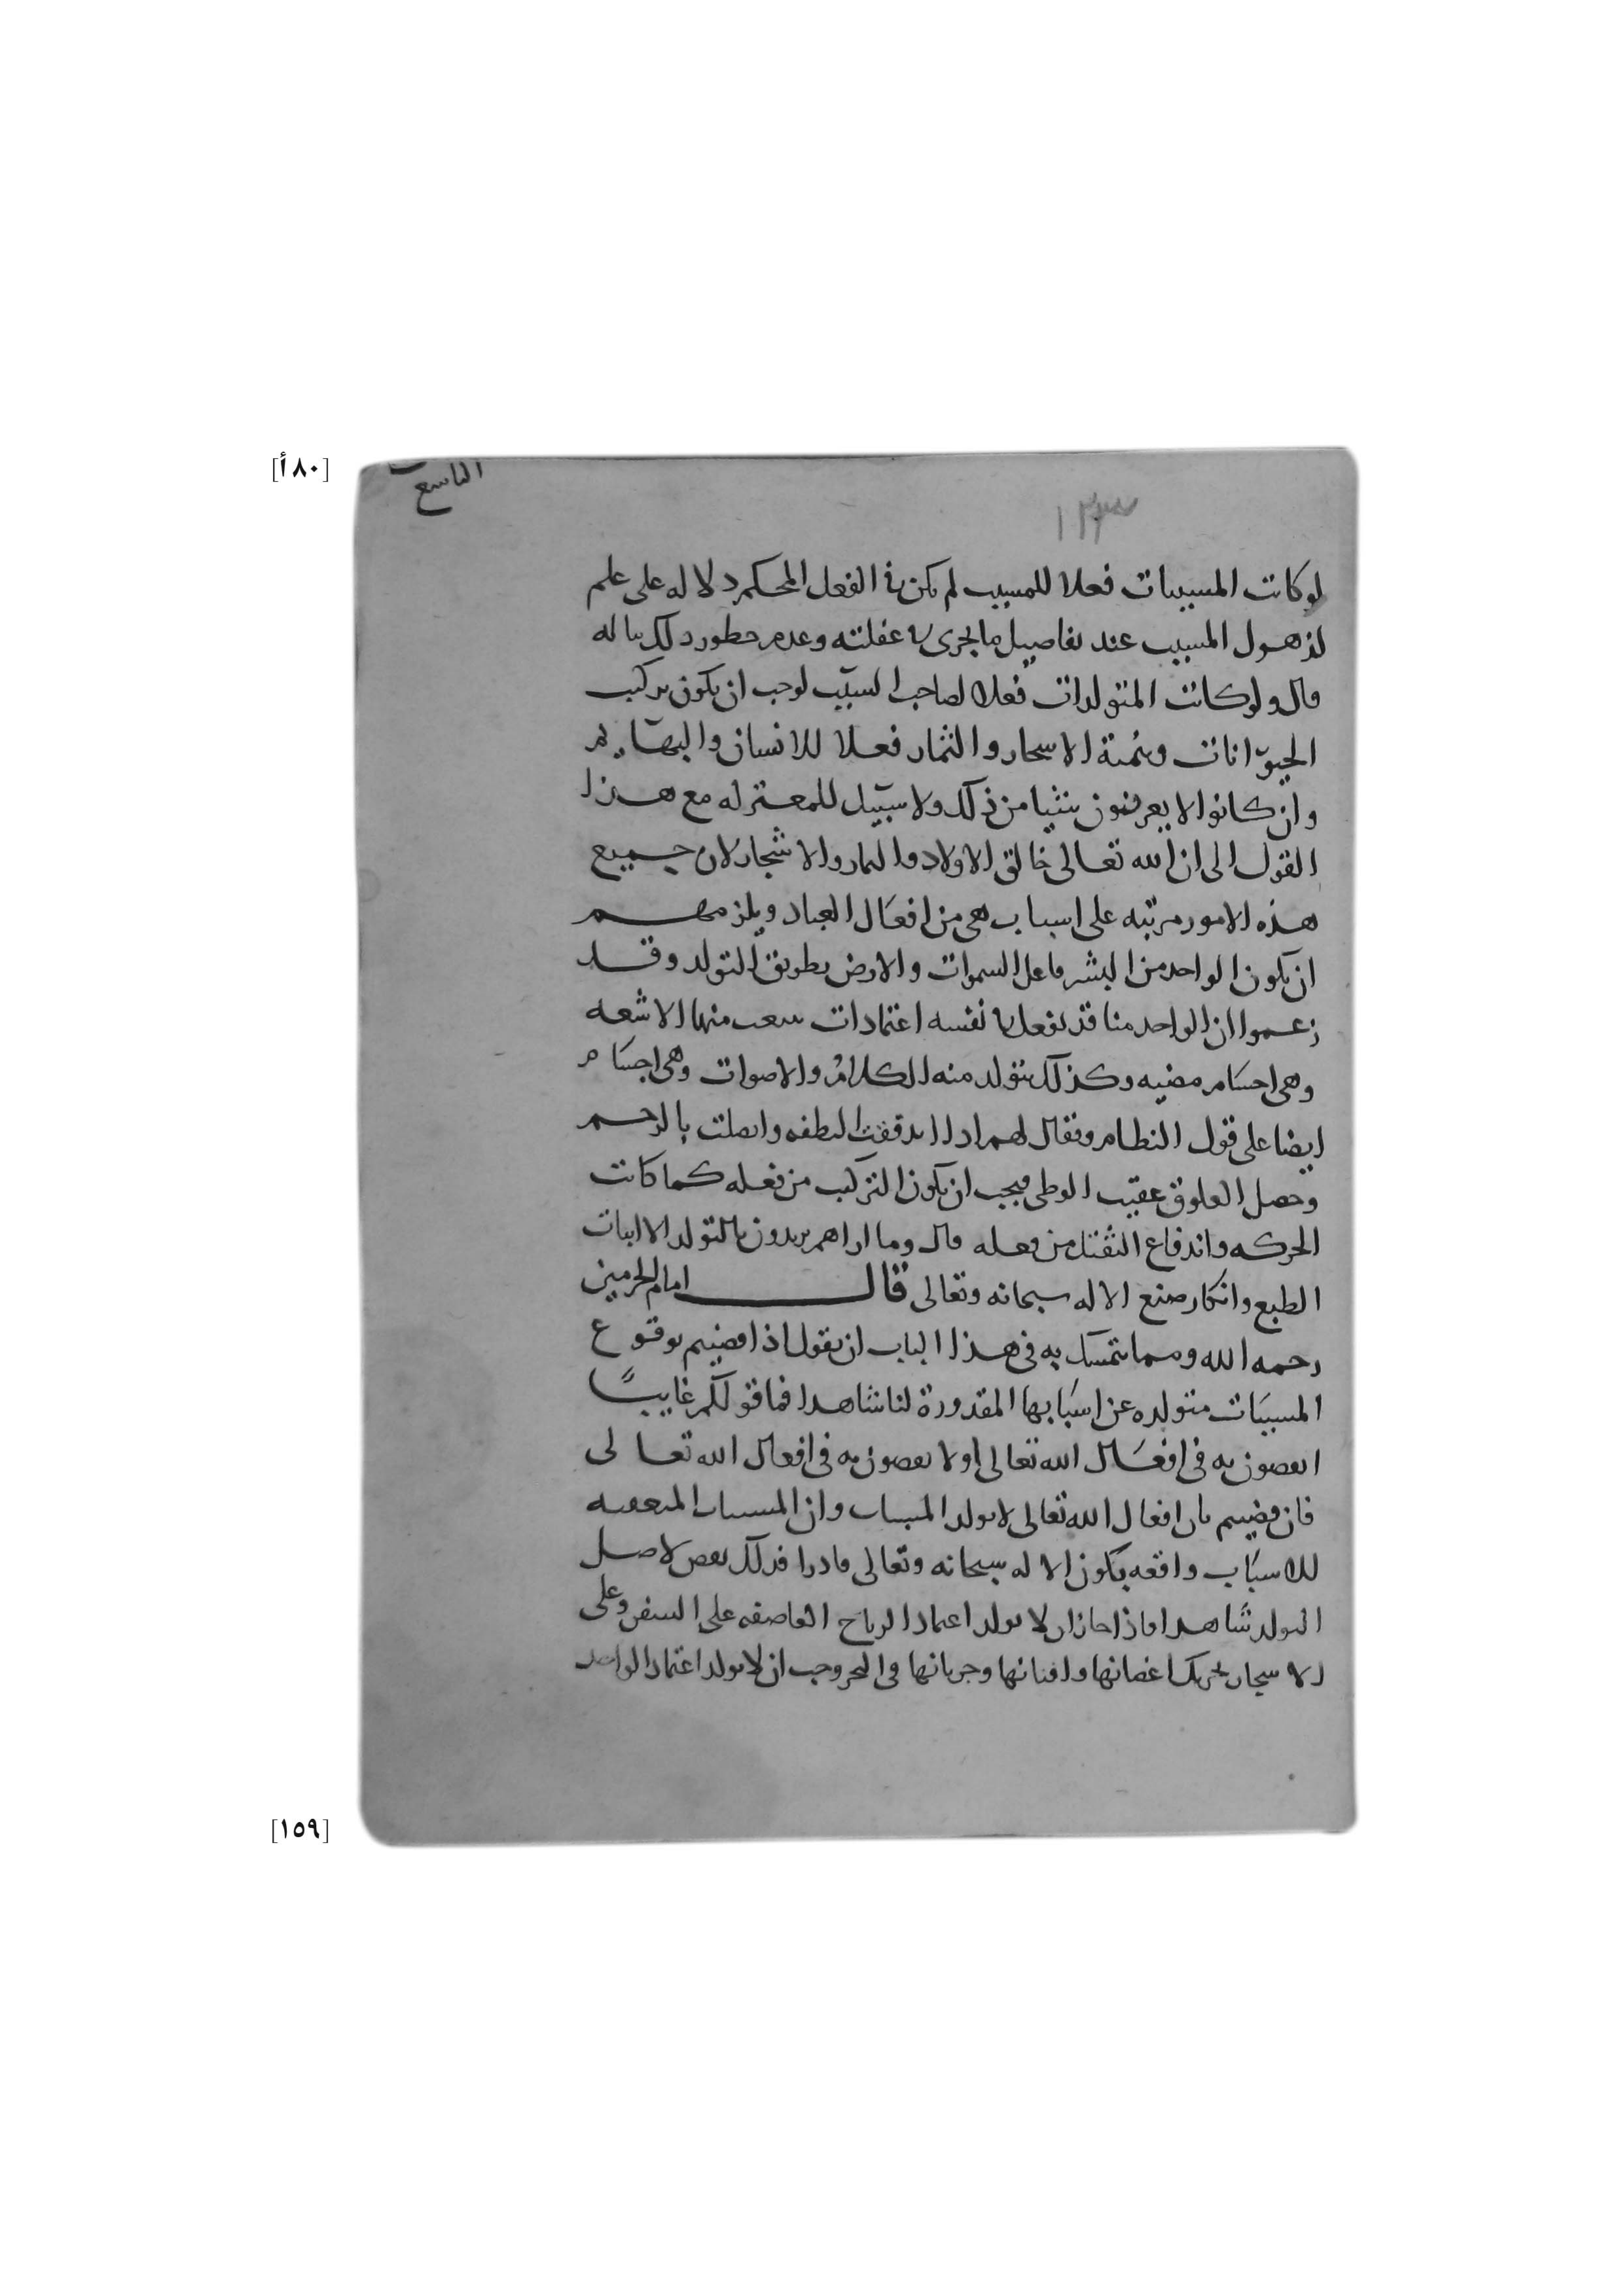 [٨٠أ]
التاسع
١٣٣
لو كانت المسببات فعلا للمسبب لم يكن في الفعل المحكم دلاله على علم
لذهول المسبب عند تفاصيل ما يجري في غفلته وعدم خطور ذلك بباله
قال ولو كانت المتولدات فعلا لصاحب السبب لوجب ان يكون تركيب
الحيوانات وتنمية الاشجار والثمار فعلا للانسان والبهايم
وان كانوا لا يعرفون شيئا من ذلك ولا سبيل للمعتزله مع هذا
القول الى ان الله تعالى خالق الاولاد والثمار والاشجار لان جميع
هذه الامور مرتبه على اسباب هي من افعال العباد ويلزمهم
ان يكون الواحد من البشر فاعل السموات والارض بطريق التولد وقد
زعموا ان الواحد منا قد يفعل في نفسه اعتمادات منها الاشعه
وهي اجسام مضيه وكذلك يتولد منه الكلام والاصوات وهي اجسام
ايضا على قول النظام ويقال لهم اذا اندفقت النطفه واتصلت بالرحم
وحصل العلوق عقيب الوطى فيجب ان يكون التركيب من فعله كما كانت
الحركه واندفاع الثقيل من فعله قال وما اراهم يريدون بالتولد الا اثبات
الطبع وانكار صنع الاله سبحانه وتعالى قال امام الحرمين
رحمه الله ومما نتمسك به في هذا الباب ان نقول اذا قضيتم بوقوع
المسببات متولده عن اسبابها المقدورة لنا شاهدا فما قولكم غايبًا
اتقضون به في افعال الله تعالى او لا تقضون به في افعال الله تعالى
فان قضيتم بان افعال الله تعالى لا تولد المسببات وان المسببات المتعقبه
للاسباب واقعه بكون الاله سبحانه وتعالى قادرا فذلك نقض لاصل
التولد شاهدا فاذا جاز ان لا يولد اعتماد الرياح العاصفه على السفن وعلى
الاشجار تحريك اغصانها وافنانها وجريانها في البحر وجب ان لا يولد اعتماد الواحد
[١٥٩]